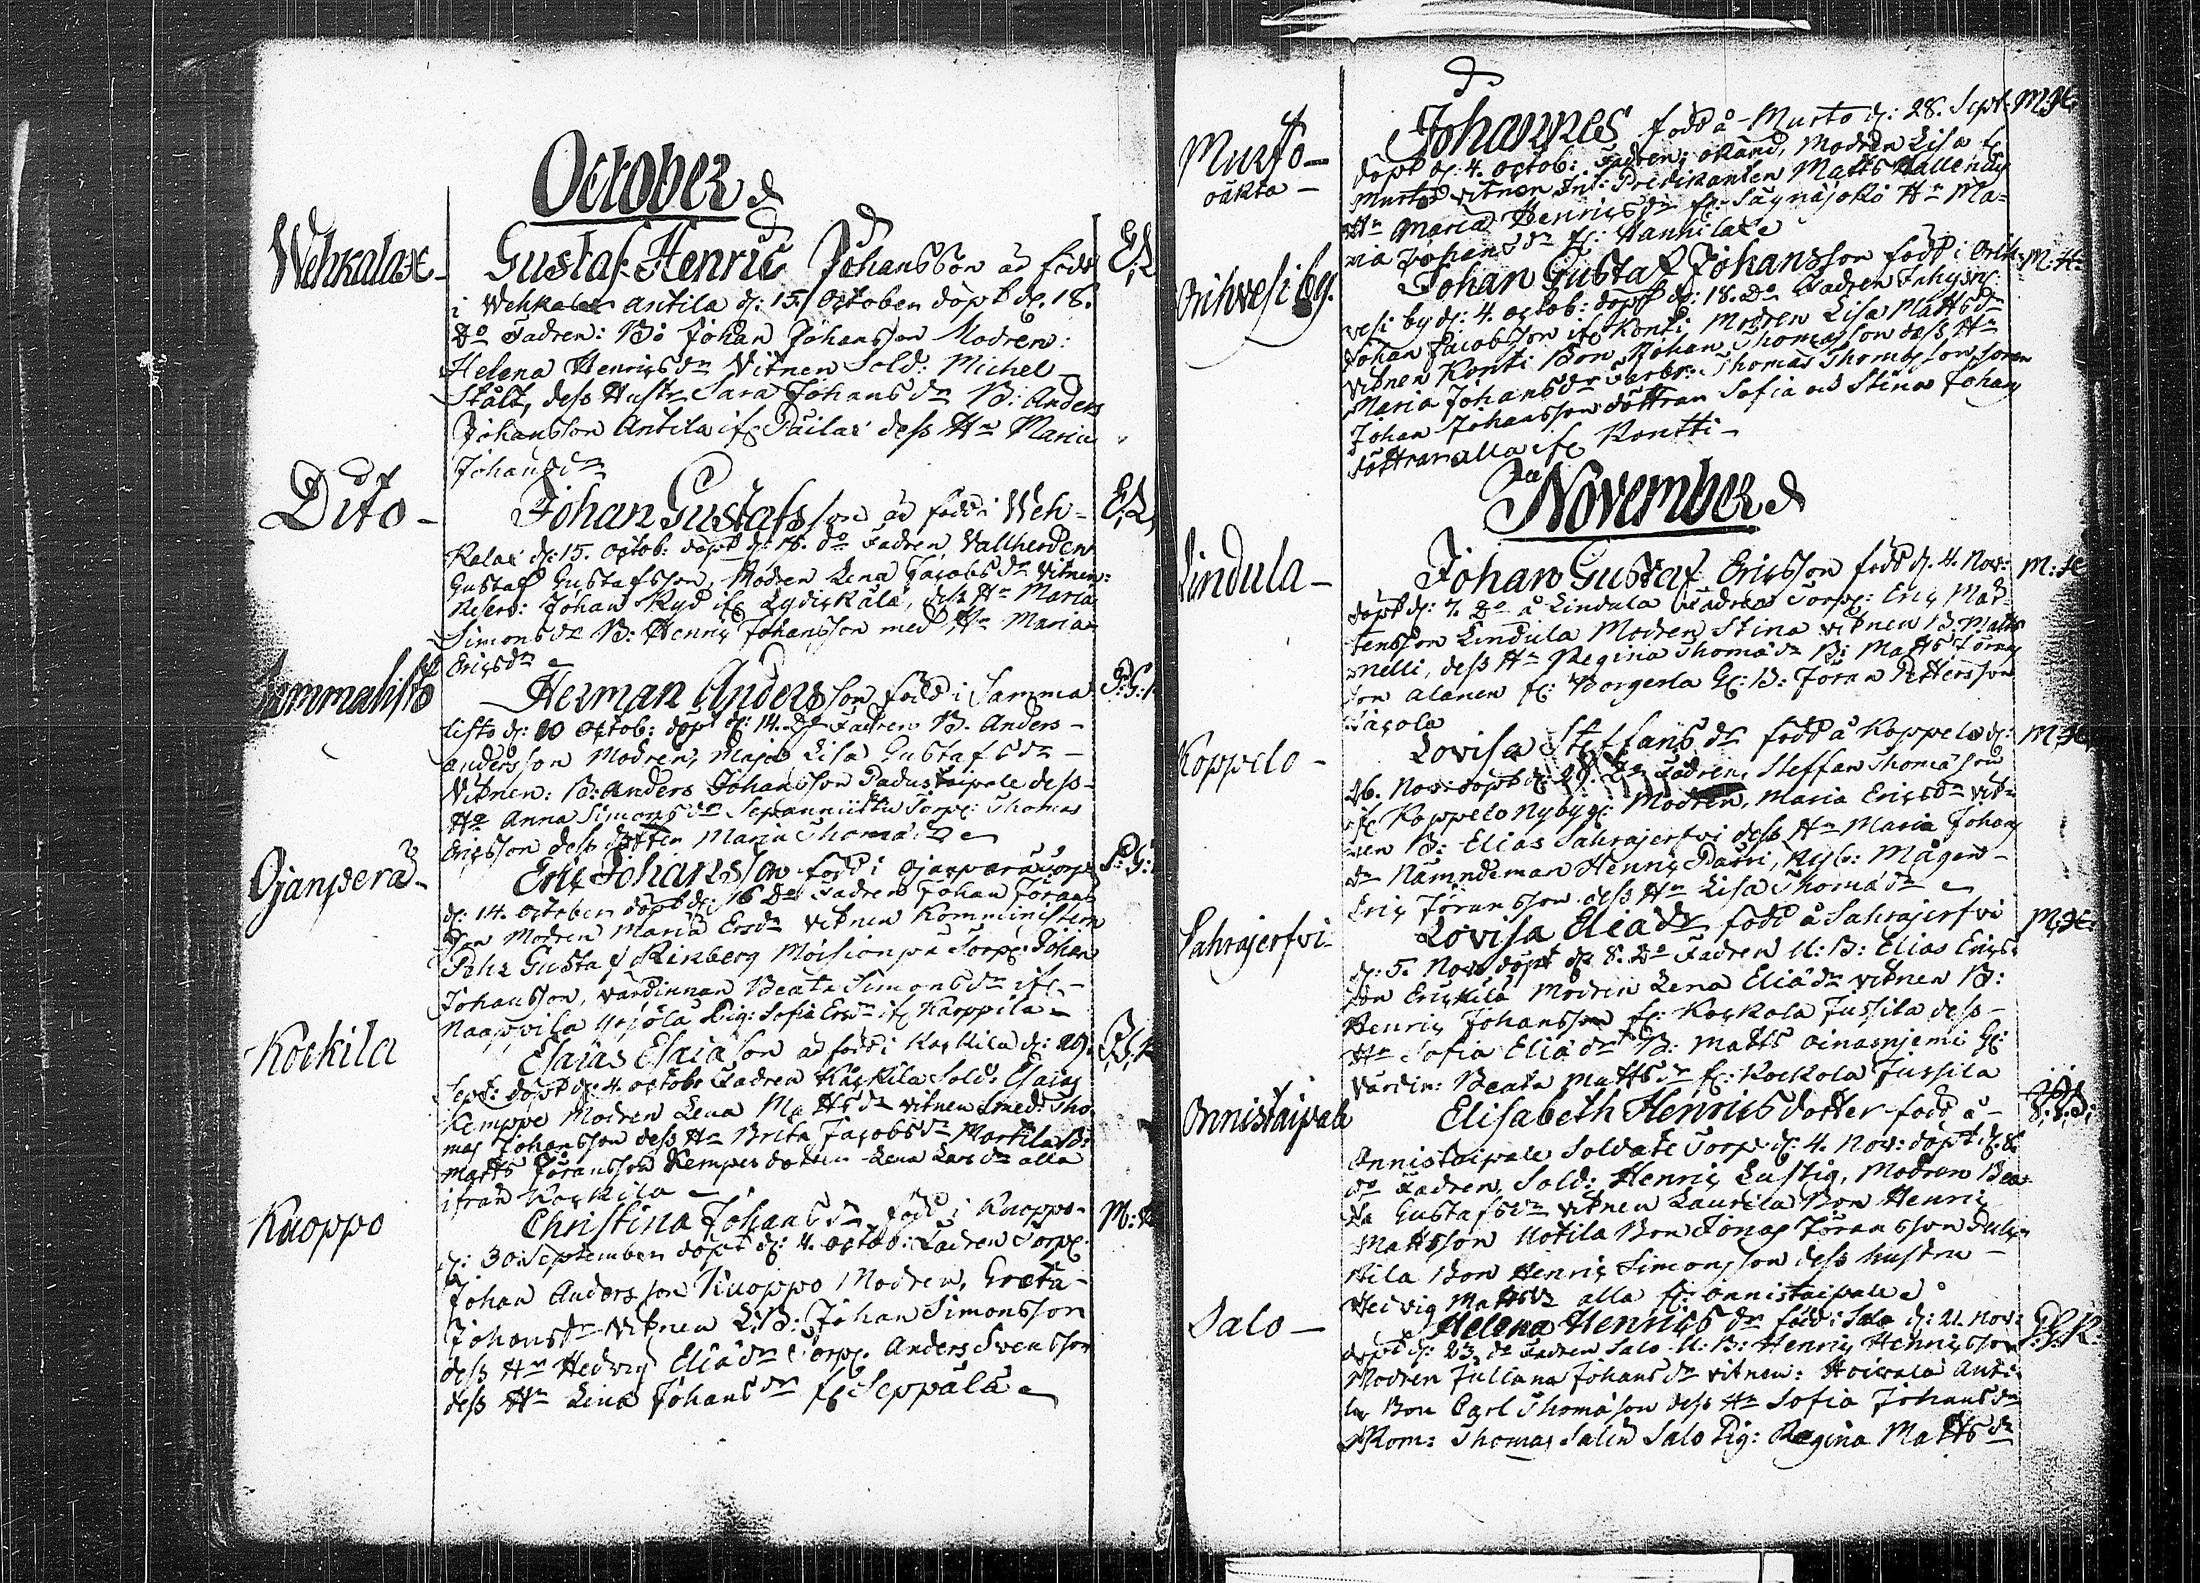 October
Wehkalax - Gustaf Henric Johansson är född E.L
i Wehkalax Antila d: 15. October döpt d. 18.
do Fadren: Bo Johan Johansson Modren:
Helena Henricsdr Vitnen Sold: Michel
Stålt, dess Hustr Sara Johansdr B: Anders
Johansson Antila if Pailax dess Hu Maria
Johansdr
Dito - Johan Gustafsson är född i Weh- E.L.
kalax d: 15. Octob: döpt d: 18. do Fadren Vallherden
Gustaf Gustafsson, Modren Lena Jacobsdr Vitnen:
Reserv: Johan Ryd if Lydickälä, dess Hu Maria
Simonsdr B: Henric Johansson med Hu Maria
Ericsdr
Sammalisto Herman Andersson född i Samma
listo d: 10 Octob: döpt d: 14. do Fadren B. Anders
Andersson Modren, Maja Lisa Gustafsdr
Vitnen: B: Anders Johansson Padustaipale dess
Hu Anna Simonsdr Torp: Thomas
Ericsson dess dotter Maria Thomadr
Ojanperä - Eric Johansson född i Ojanperä torp
d: 14. October döpt d: 16 do Fadren Johan Jörans
son Modren Maria Ersdr Vitnen Kommunistern
Gustaf Rinberg Moision pä Torp: Johan
Johansson, värdinnan Beata Simonsdr if
Naappila Yrjölä Pig: Sofia Ersdr if Kaappila
Kockila Esaias Esaiason är född i Kockila d: 29.
Sept: döpt d: 4. Octobr Fadren Kockila Sold: Esaias
Kemppe Modren Lena Mattsdr vitnen Smed: Tho
mas Johansson dess Hu Brita Jacobsdr Marttila B:
Matts Jöransson Kempes dottern Lena Larsdr alla
ifrån Kockila
Knoppo Christina Johansdr född i Knoppo
d: 30. September döpt d: 4. Octob: Fadren Torp:
Johan Andersson Knoppo Modren, Greta
Johansdr Vitnen L: B: Johan Simonsson
dess Hu Hedvig Eliädr Torp. Anders Svensson
dess Hu Lena Johansdr if Seppälä
Mursto - Johannes född å Mursto d: 28. Sept. M:H:
oäkta - döpt d: 4. Octob: Fadren: okänd, Modren Lisa
Mursto vitnen Int: Predikanten Matts Hallenius
Hu Maria Henricsdr fr: Säynäjoki Hu Ma=
ria Johansdr fr: Hannila
Orihvesi by. Johan Gustaf Johansson född i Orih- M:H:
vesi by d: 4. octob: döpt d: 18. do Fadren Inhyses:
Johan Jacobsson if Konti, Modren Lisa Mattsdr
vitnen Konti Bon Johan Thomasson dess Hu
Maria Johansdr Farbr: Thomas Thomasson, sonen
Johan Johansson döttran Sofia och Stina Johans
döttrar alla if Kontti -
November
Lindula - Johan Gustaf Ericsson född d. 4. Nov: M:H
döpt d: 7. do å Lindula Fadren Torp: Eric Mår-
tensson Lindula Modren Stina vitnen B: Matts
Melli, dess Hu Regina Thomadr B: Matts Jörans
son Alanen fr: Borgerla Gl: B: Jöran Pettersson
Jacola
Koppelo - Lovisa Steffansdr född å Koppelo d: M:H:
26. Nov: döpt d: 29. do Fadren, Steffan Thomäson
if Koppelo Nyby gl: Modren, Maria Ericsdr vit-
nen B: Elias Sahrajerfvi dess Hu Maria Johans
dr Nämndeman Henric Padri, Nyb: Mågen
Eric Jöransson dess Hu Lisa Thomädr
Sahrajerfvi - Lovisa Eliädr född å Sahrajerfvi M:H:
d: 5. Nov: döpt d: 8. do Fadren U: B: Elias Erics
son Erickilä Modren Lena Eliädr vitnen B:
Henric Johansson fr: Kockola Jussila dess
Hu Sofia Eliädr B: Matts Oinasniemi Gl:
värdin: Beata Mattsdr fr: Kockola Jussila
Onnistaipale Elisabeth Henricsdotter född å
Onnistaipale Soldate Torp d: 4. Nov: döpt d: 8.
do Fadren, Sold: Henric Lustig, Modren Bea-
ta Gustafsdr vitnen Laurila Bon Henric
Mattsson Uotila Bon Jonas Jöransson
Bon Henric Simonsson dess hustru
Hedvig Mattsdr alla fr: Onnistaipale
Salo - Helena Henricsdr född i Salo d: 21. Nov:
döpt d: 23. do Fadren Salo U: B: Henric Henricsson
Modren Juliana Johansdr vitnen: Hoivala Anti-
la Bon Carl Thomäson dess Hu Sofia Johansdr
Rom: Thomas Salin Salo Pig: Regina Mattsdr